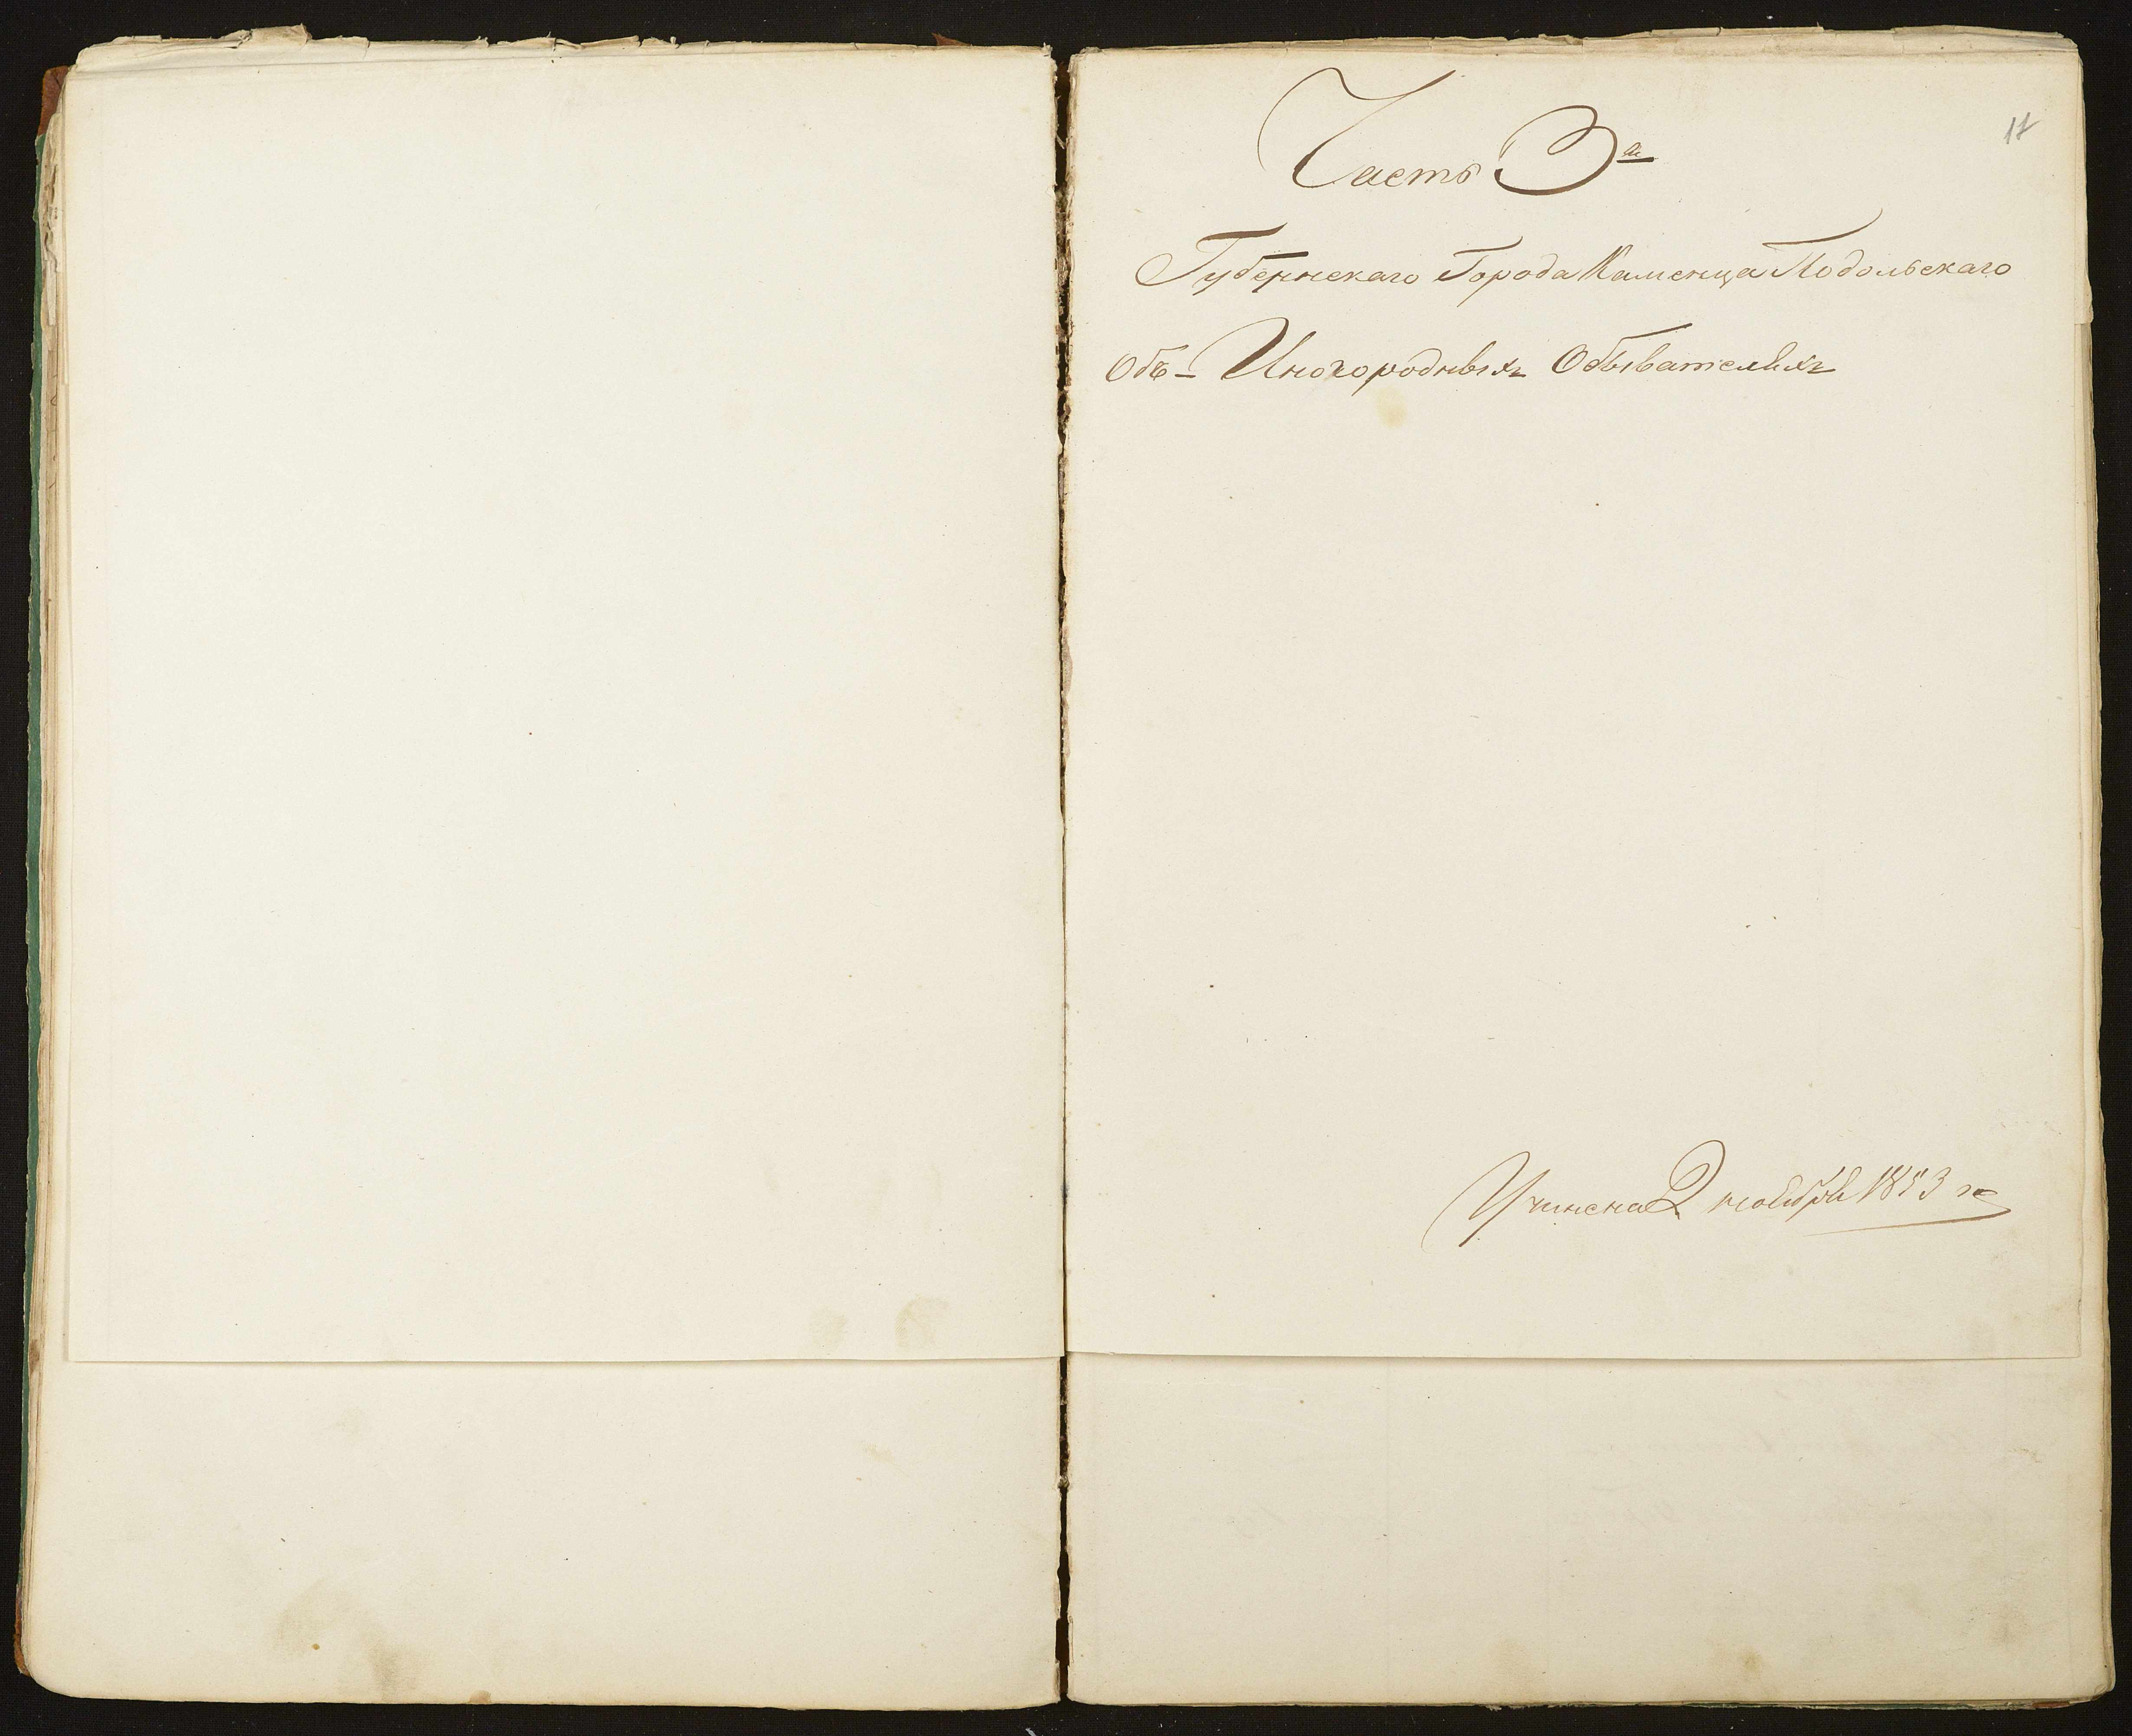 17
Часть 3<sup>а</sup>
Губернскаго Города Каменца Подольскаго
Объ Иногородныхъ Обывателяхъ
Учинена 2 ноября 1853 го